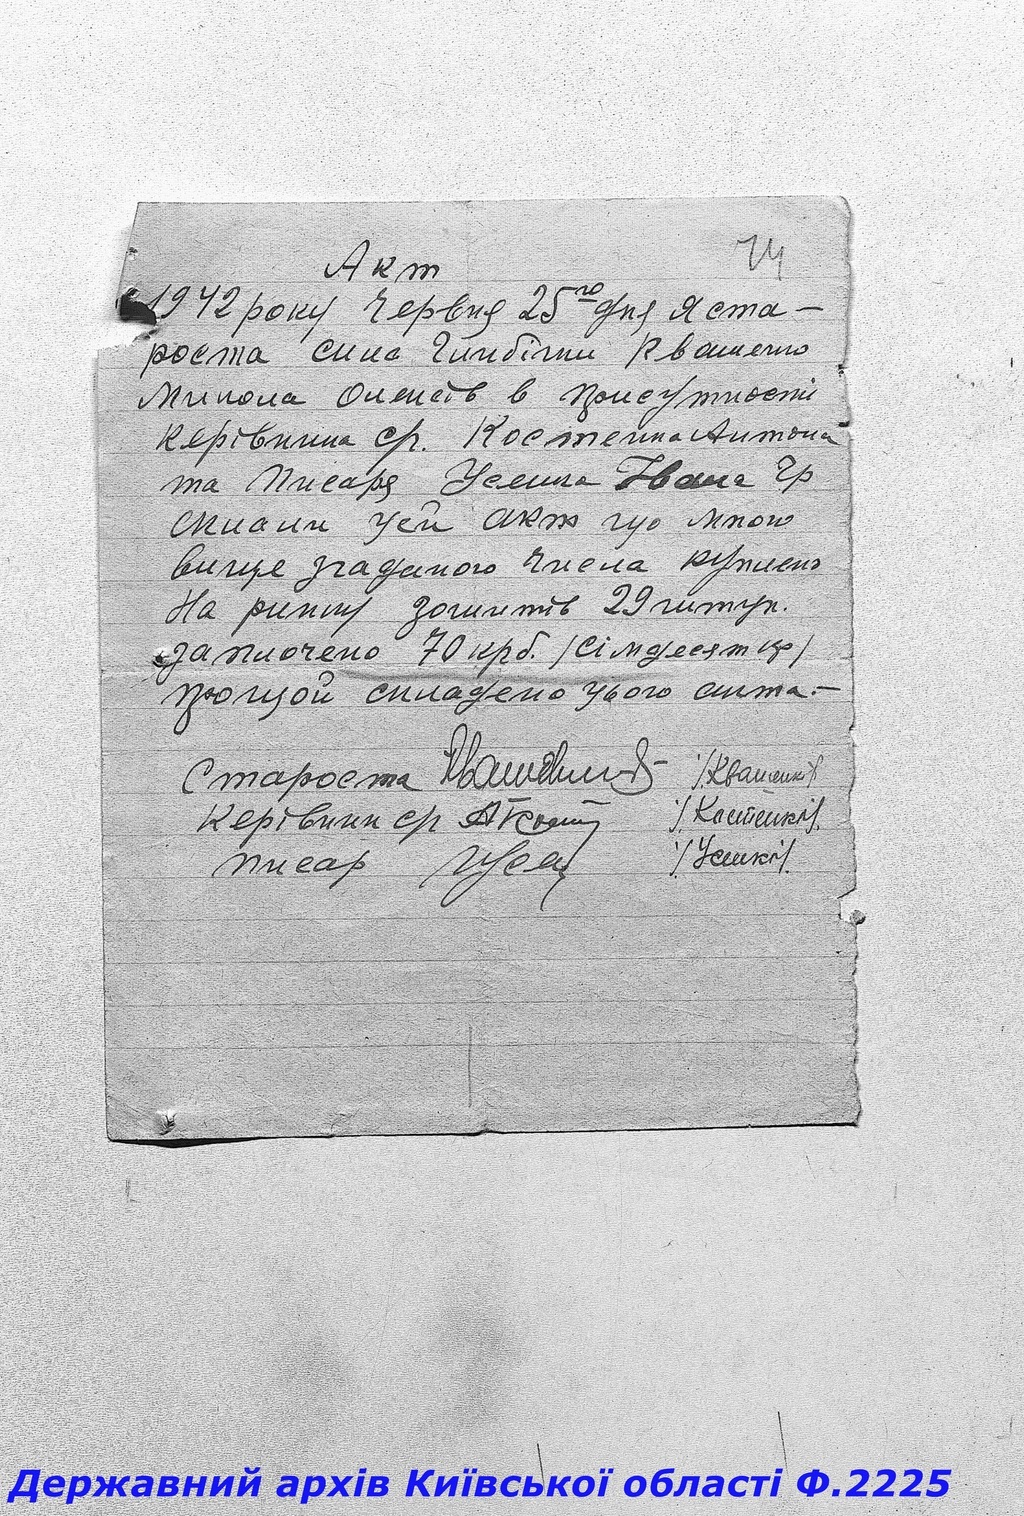 Акт
74
1942 року Червня 25го дня Я ста-
роста села Квашенко
Микола в присутності
Керівника ср. Костенка Антона
та Писаря Усенка Івана Гр
склали цей акт що мною
вище згаданого числа куплено
На ринку зошитів 29 штук.
заплочено 70 крб. /сімдесят кр/
про що й складено цього акта.-
Староста /Квашенко/
Керівник ср /Костенко/.
писар /Усенко/.
Державний архів Київської області Ф.2225